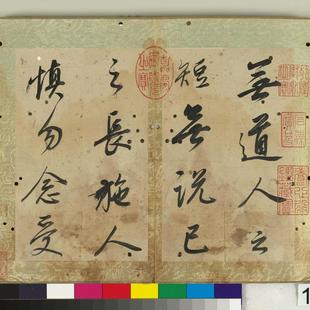 無道人之
短無説己
之長施人
慎勿念受